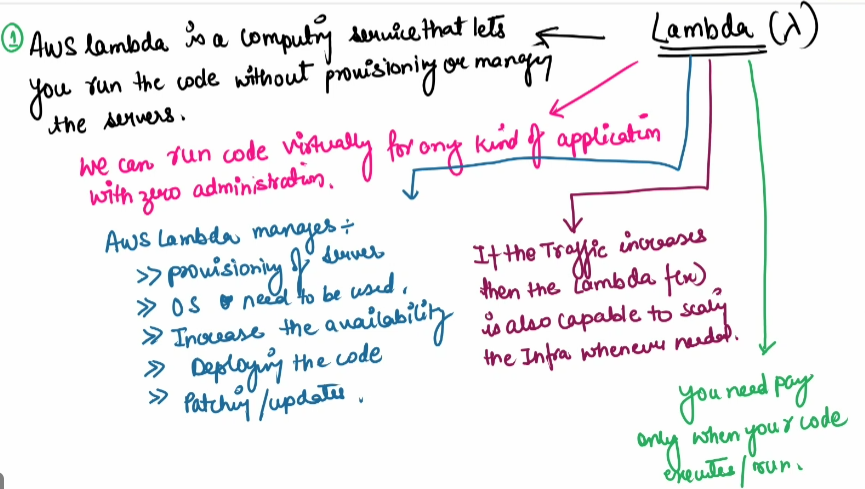 Lambda (λ)
① Aws lambda is a computing service that lets
you run the code without provisioning or managing
the servers.
we can run code virtually for any kind of application
with zero administration.
Aws Lambda manages ÷
>> provisioning of server
>> OS need to be used.
>> Increase the availability
>> Deploying the code
>> Patching/updates.
If the Traffic increases
then the Lambda f(x)
is also capable to scaling
the Infra whenever needed.
you need pay
only when your code
executes/run.